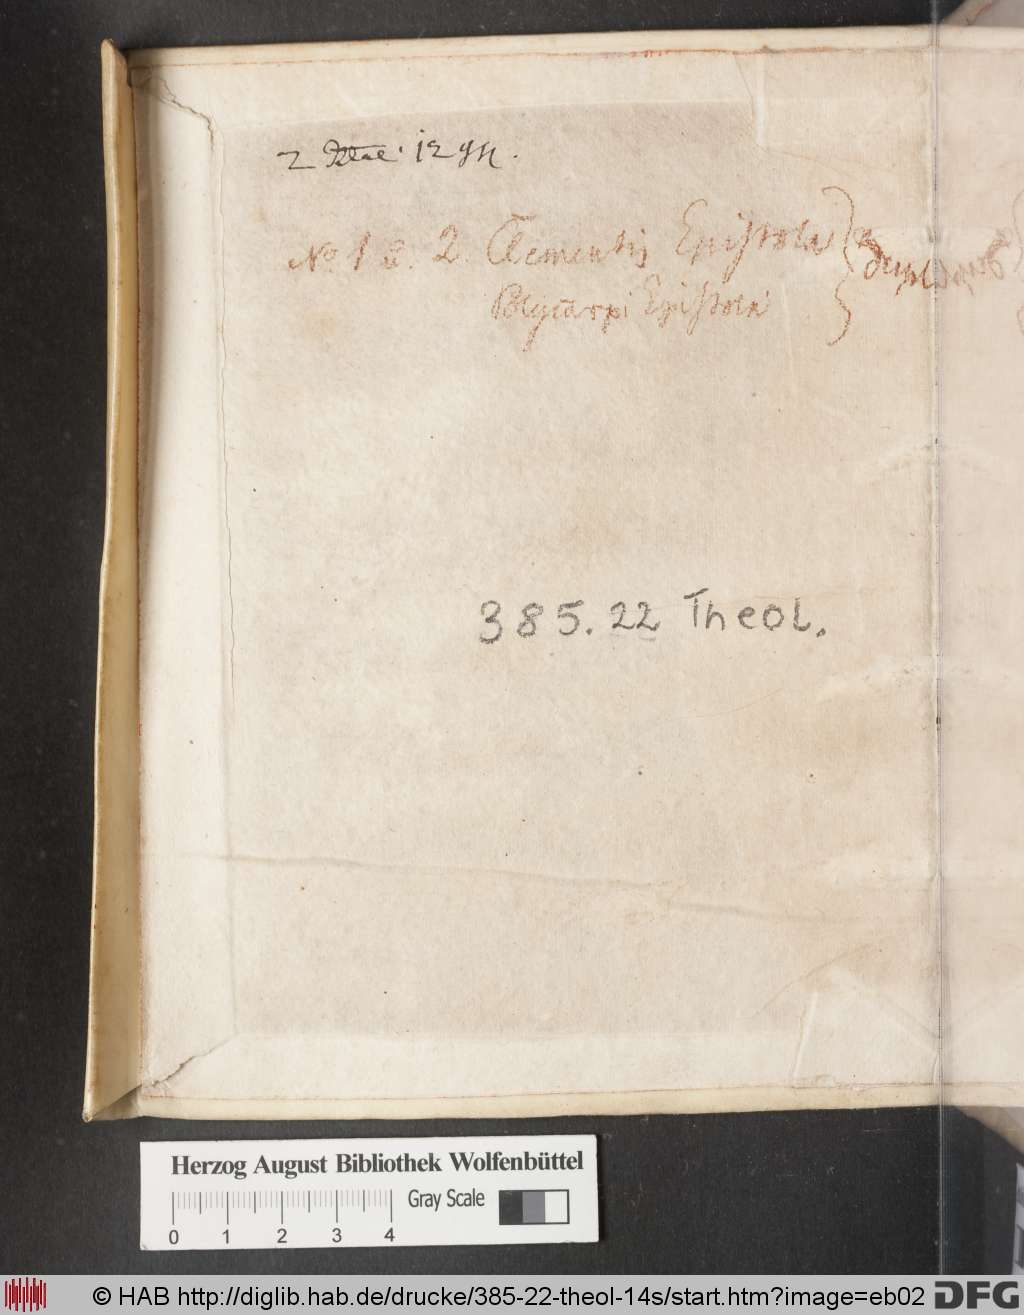 2 Thlr. 12 ggl.
No 1 u. 2. Clementis Epistola
Polycarpi Epistola
385.22 Theol.
Herzog August Bibliothek Wolfenbüttel
Gray Scale
0 1 2 3 4
© HAB http://diglib.hab.de/drucke/385-22-theol-14s/start.htm?image=eb02
DFG